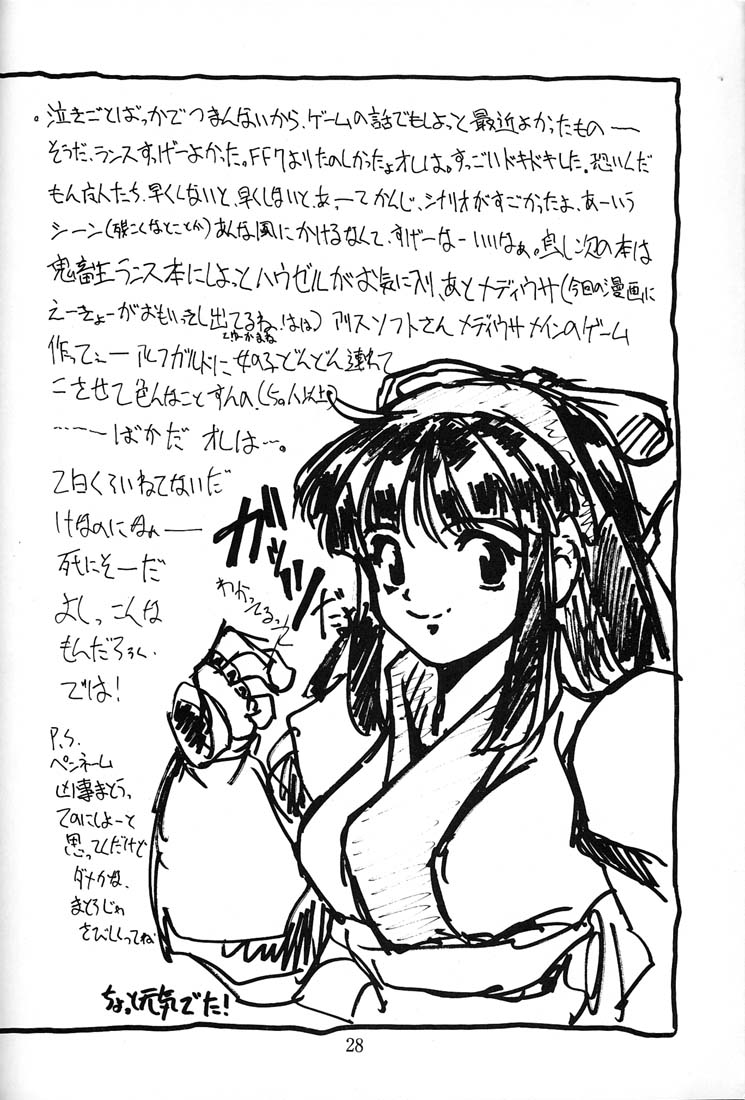 。泣きごとばっかでつまんないから、ゲームの話でもしよっと 最近よかったもの——
そうだ、ランスすっげーよかった。FF7よりたのしかったよオレは。すっごいドキドキした。恐いんだ
もん友人たち、早くしないと、早くしないと、あ、ーてかんじ、シナリオがすごかったよ、あーいう
シーン(とことか)あんな風にかけるなんて、すげーなーいいなぁ。良し次の本は
鬼畜王ランス本にしよっと ハウゼルがお気に入り、あとメディウサ(今回の漫画に
えーきょーがおもいきし出てるね、はは)アリスソフトさん メディウサメインのゲーム
作ってェー アルフガルドに女の子どんどん連れて
こさせて色んなことすんの、
……ーばかだ オレは…。
2日くらいねてないだ
けなのになぁ——
死にそーだ
よしっこんな
もんだろぅ、
では!
ガッツ
だっ
わかってるってェ
P.S.
ペンネーム
凶事まとう、
てのにしよーと
思ってんだけど
ダメかな、
まとうじゃ
さびしくってね
ちょっと元気でた!
28